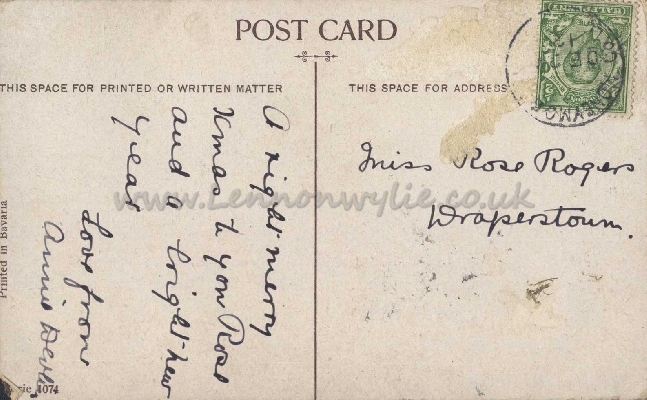 POST CARD
THIS SPACE FOR PRINTED OR WRITTEN MATTER
THIS SPACE FOR ADDRESS
A right merry
Xmas to you Rose
and a bright new
year
Love from
Annie
Miss Rose Rogers
Draperstown.
www.Lennonwylie.co.uk
Printed in Bavaria
1074